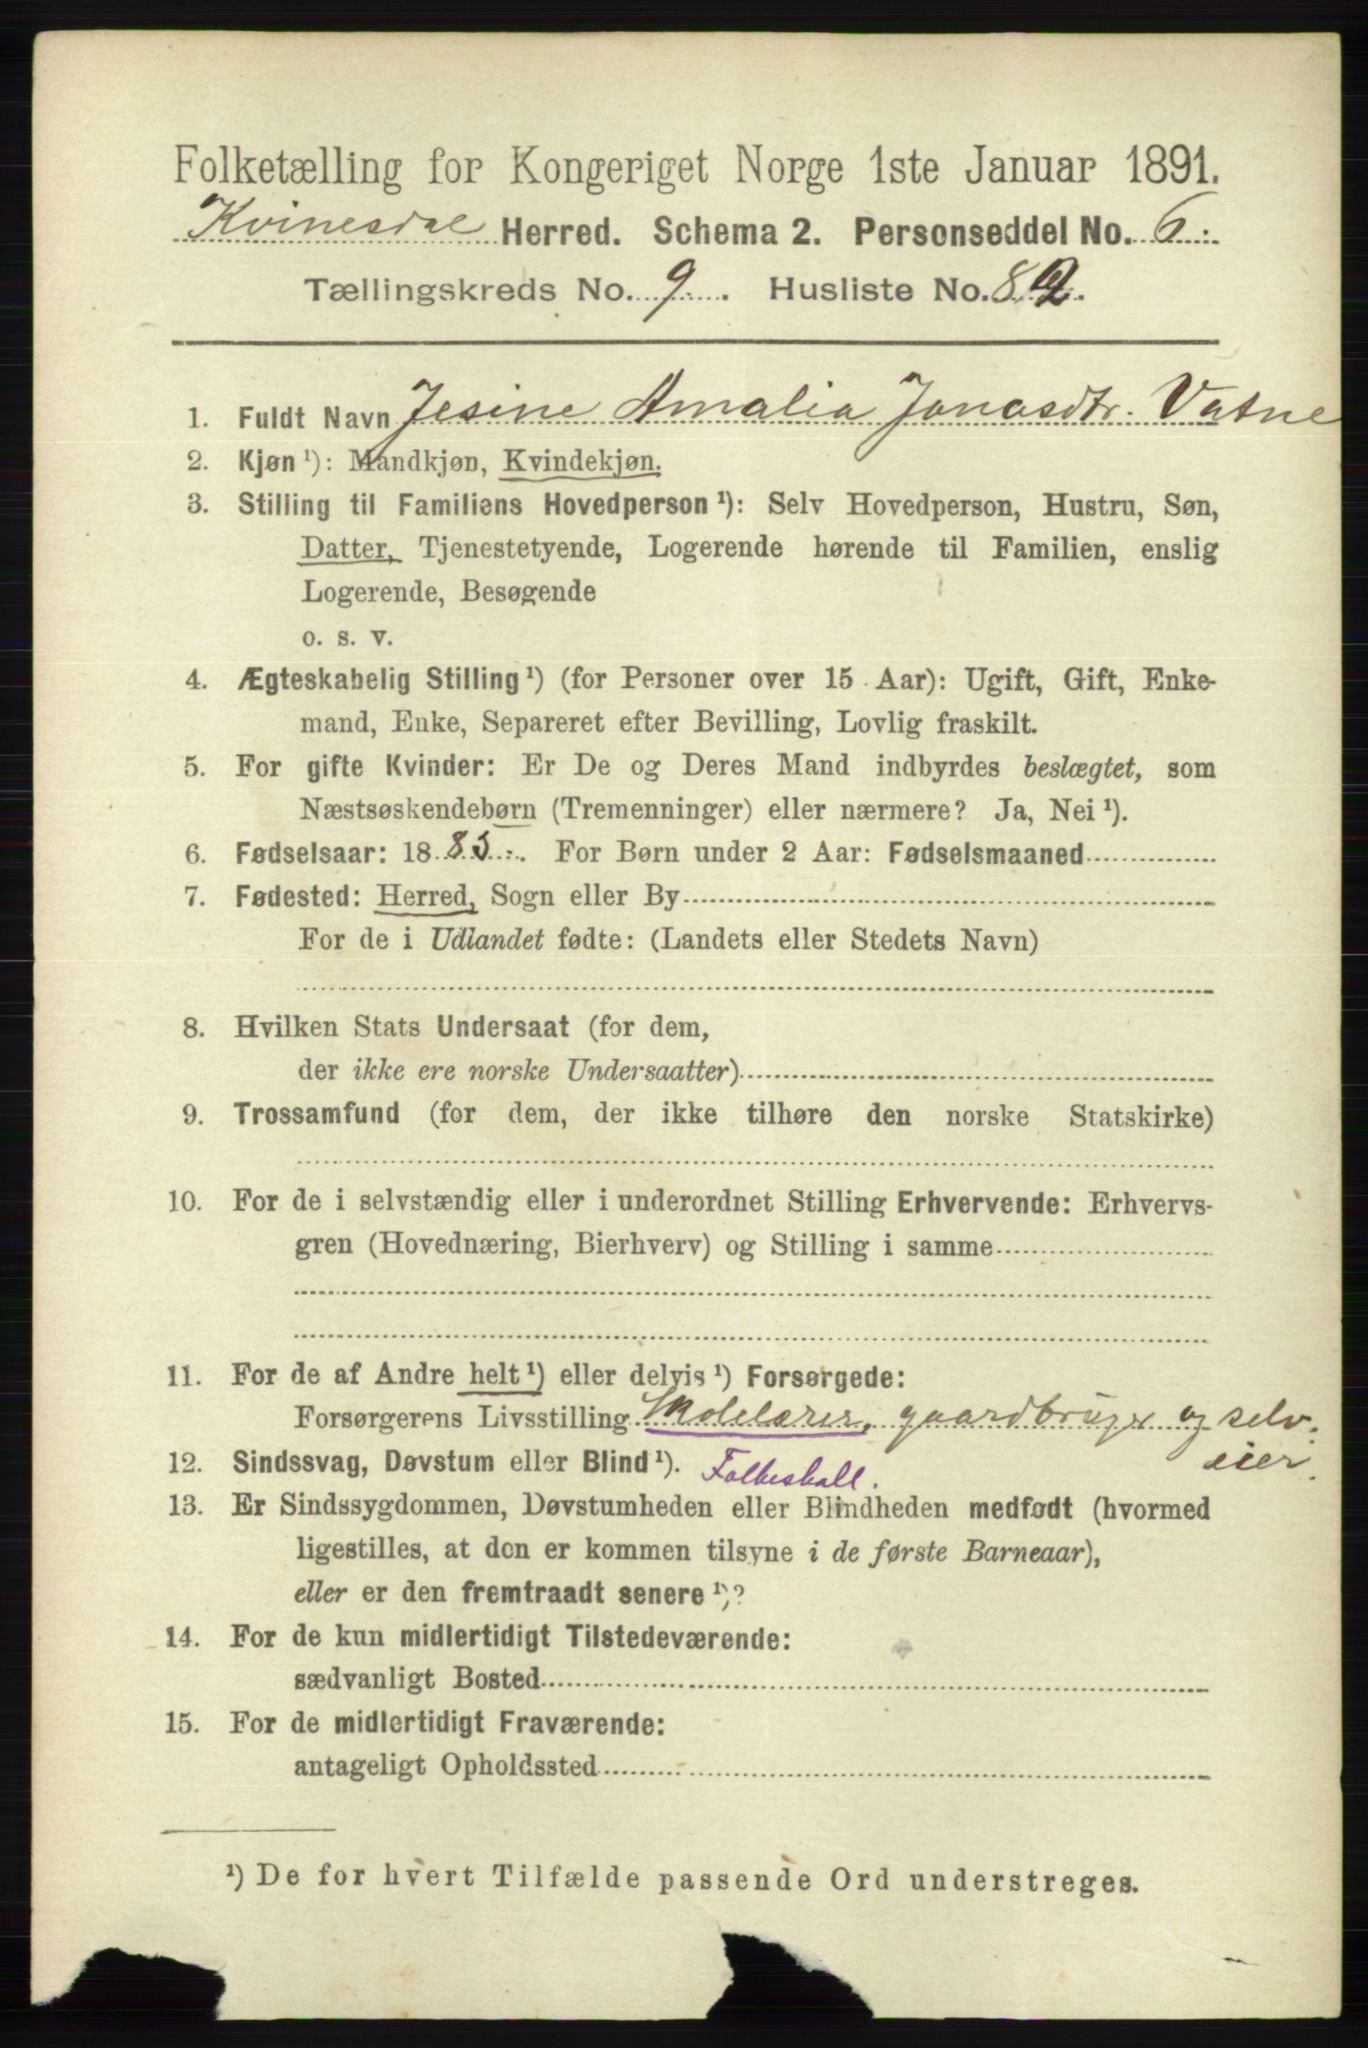 Folketælling for Kongeriget Norge 1ste Januar 1891.
Kvinesdal Herred. Schema 2. Personseddel No. 6.
Tællingskreds No. 9. Husliste No. 82.
1. Fuldt Navn Jesine Amalia Jonasdtr. Vatne
2. Kjøn ¹): Mandkjøn, Kvindekjøn.
3. Stilling til Familiens Hovedperson ¹): Selv Hovedperson, Hustru, Søn,
Datter, Tjenestetyende, Logerende hørende til Familien, enslig
Logerende, Besøgende
o. s. v.
4. Ægteskabelig Stilling ¹) (for Personer over 15 Aar): Ugift, Gift, Enke-
mand, Enke, Separeret efter Bevilling, Lovlig fraskilt.
5. For gifte Kvinder: Er De og Deres Mand indbyrdes beslægtet, som
Næstsøskendebørn (Tremenninger) eller nærmere? Ja, Nei ¹).
6. Fødselsaar: 1885. For Børn under 2 Aar: Fødselsmaaned
7. Fødested: Herred, Sogn eller By
For de i Udlandet fødte: (Landets eller Stedets Navn)
8. Hvilken Stats Undersaat (for dem,
der ikke ere norske Undersaatter)
9. Trossamfund (for dem, der ikke tilhøre den norske Statskirke)
10. For de i selvstændig eller i underordnet Stilling Erhvervende: Erhvervs-
gren (Hovednæring, Bierhverv) og Stilling i samme
11. For de af Andre helt ¹) eller delvis ¹) Forsørgede:
Forsørgerens Livsstilling Skolelærer, gaardbruger og selv-
eier.
12. Sindssvag, Døvstum eller Blind ¹). Folkeskole.
13. Er Sindssygdommen, Døvstumheden eller Blindheden medfødt (hvormed
ligestilles, at den er kommen tilsyne i de første Barneaar),
eller er den fremtraadt senere ¹)?
14. For de kun midlertidigt Tilstedeværende:
sædvanligt Bosted
15. For de midlertidigt Fraværende:
antageligt Opholdssted
¹) De for hvert Tilfælde passende Ord understreges.